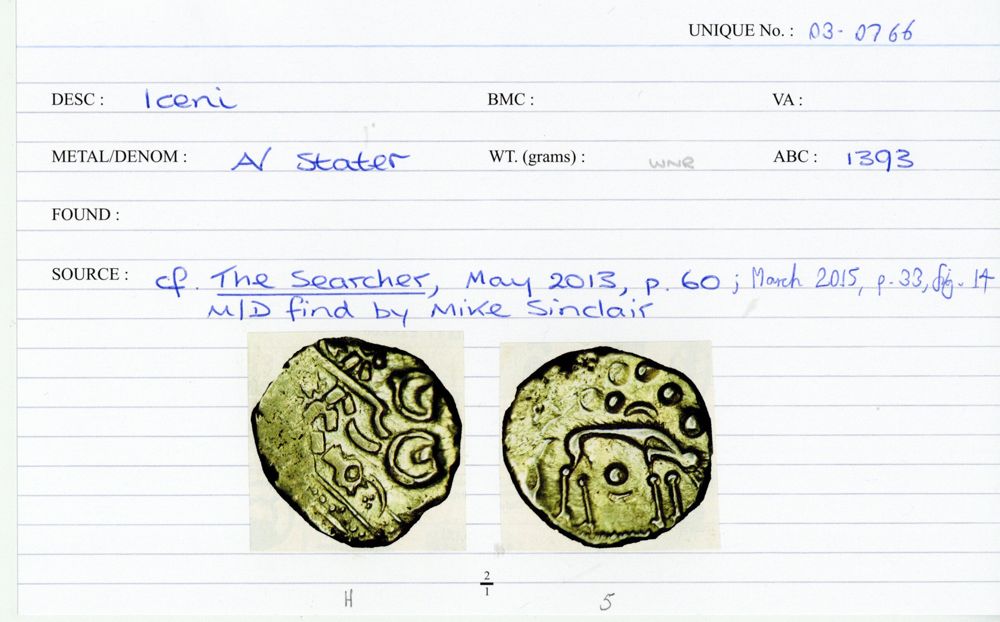 UNIQUE No. : 03-0766
DESC : Iceni BMC : VA :
METAL/DENOM : A/ Stater WT. (grams) : WNR ABC : 1393
FOUND :
SOURCE : cf. The Searcher, May 2013, p. 60 ; March 2015, p. 33, fig. 14
M/D find by Mike Sinclair
2
1
H 5